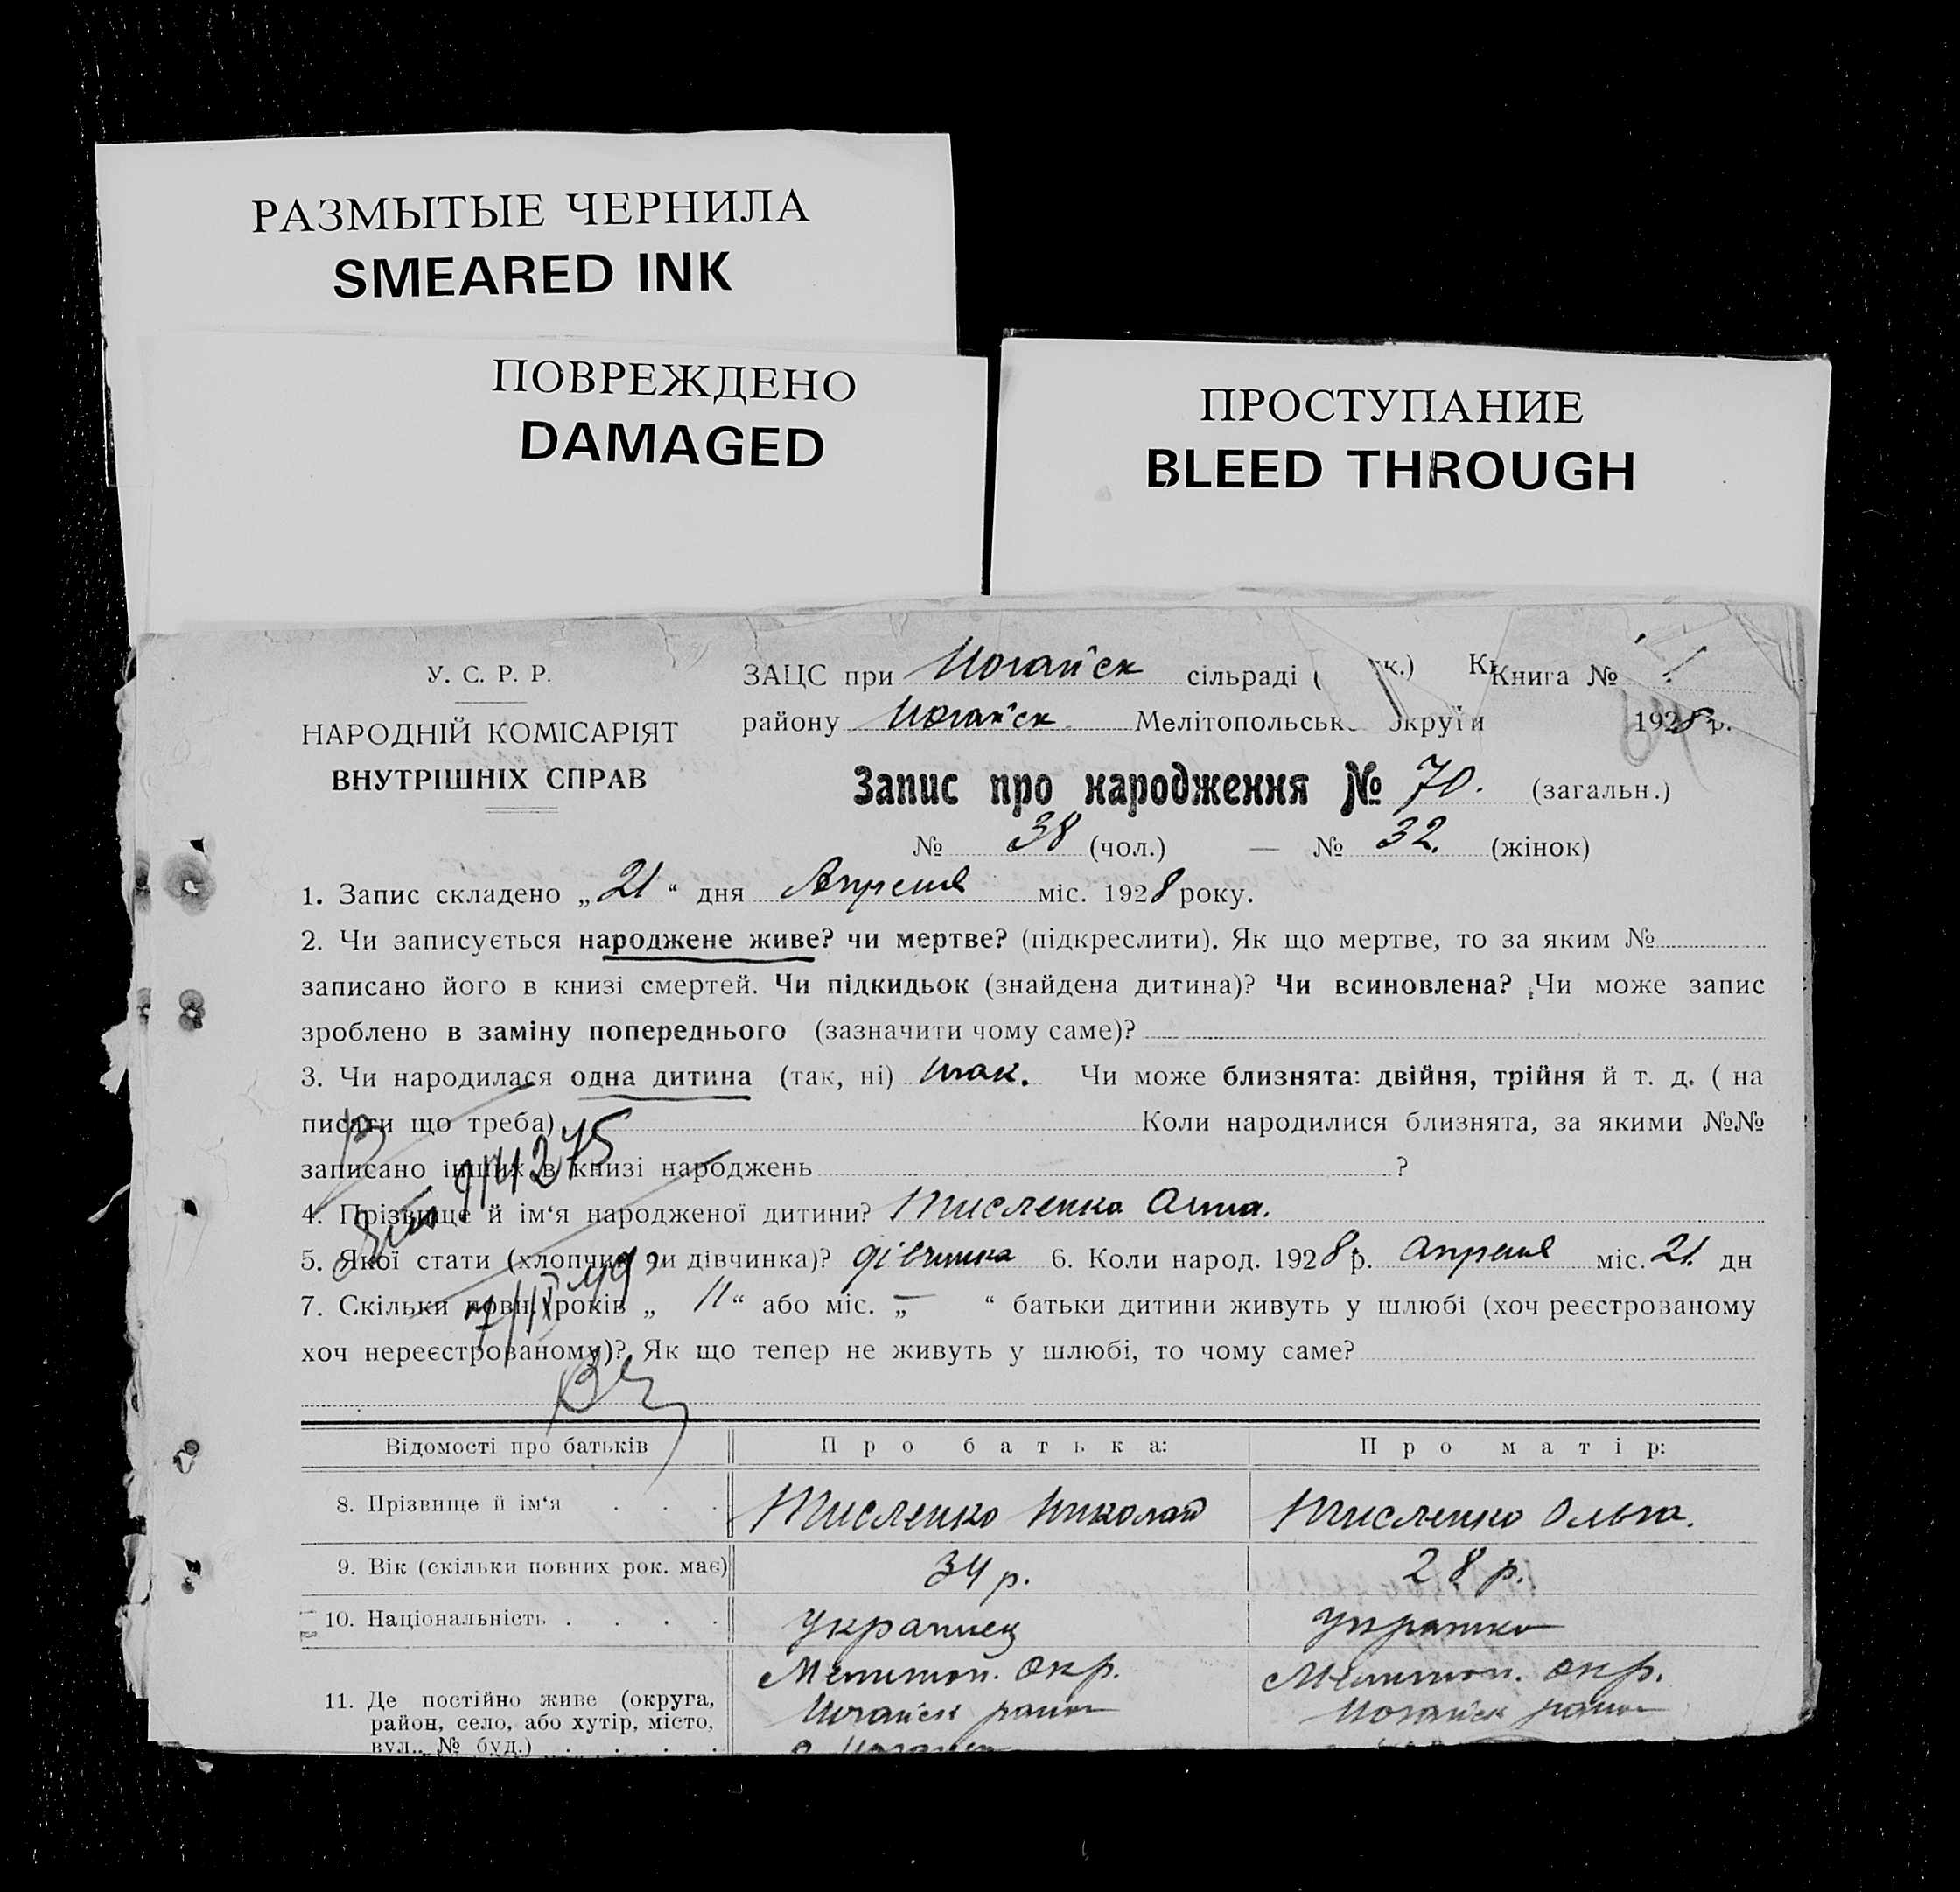 РАЗМЫТЫЕ ЧЕРНИЛА
SMEARED INK
ПОВРЕЖДЕНО
DAMAGED
ПРОСТУПАНИЕ
BLEED THROUGH
У. С. Р. Р.
НАРОДНІЙ КОМІСАРІЯТ
ВНУТРІШНІХ СПРАВ
ЗАЦС при Ногайск сільраді ( к.) Книга №
району Ногайск Мелітопольськ округи 1928 р.
Запис про народження № 70. (загальн.)
№ 38 (чол.) — № 32. (жінок)
1. Запис складено „21“ дня Апреля міс. 1928 року.
2. Чи записується народжене живе? чи мертве? (підкреслити). Як що мертве, то за яким №
записано його в книзі смертей. Чи підкидьок (знайдена дитина)? Чи всиновлена? Чи може запис
зроблено в заміну попереднього (зазначити чому саме)?
3. Чи народилася одна дитина (так, ні) так. Чи може близнята: двійня, трійня й т. д. ( на
писати що треба) Коли народилися близнята, за якими №№
записано інших в книзі народжень ?
4. Прізвище й ім‘я народженої дитини? Тисленко Анна.
5. Якої стати (хлопчик чи дівчинка)? дівчинка 6. Коли народ. 1928 р. Апреля міс. 21. дн
7. Скільки повн. років „ 11 “ або міс. „ — “ батьки дитини живуть у шлюбі (хоч реєстрованому
хоч нереєстрованому)? Як що тепер не живуть у шлюбі, то чому саме?
Відомості про батьків Про батька: Про матір:
8. Прізвище й ім‘я . . . Тисленко Николай Тисленко Ольга.
9. Вік (скільки повних рок. має) 34 р. 28 р.
10. Національність . . . . Украинец Украинка
11. Де постійно живе (округа, Мелитоп. окр. Мелитоп. окр.
район, село, або хутір, місто, Ногайск район Ногайск район
вул., № буд.) . . . .